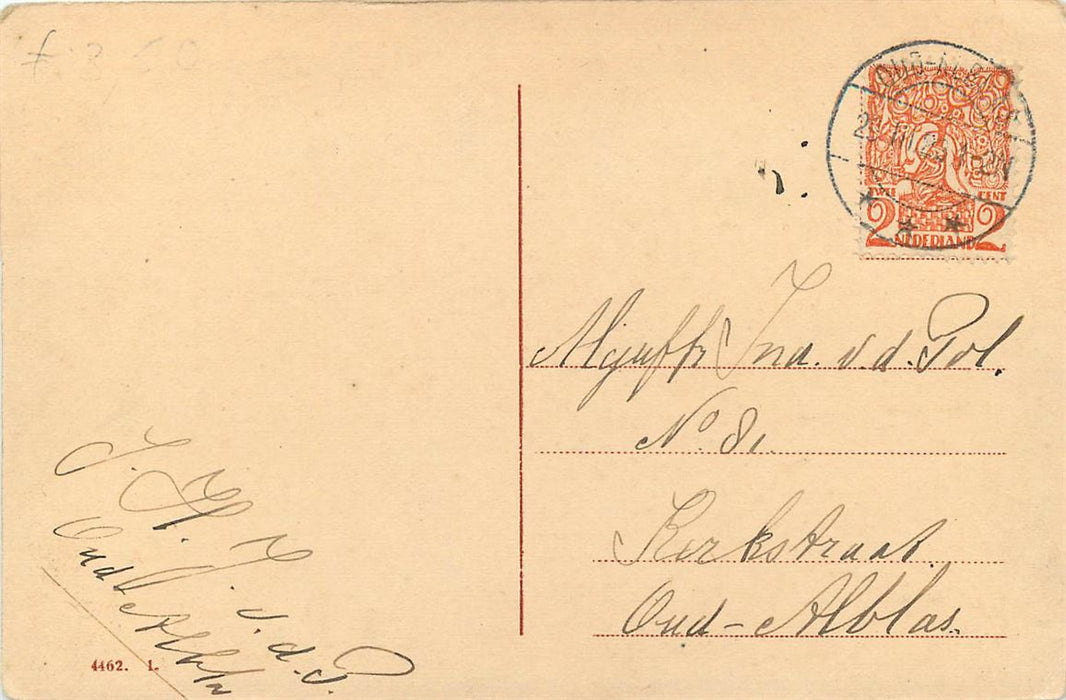 f 3 50
OUD-ALBLAS
TWEE CENT
2 NEDERLAND 2
Mejuffr Jna. v. d. Pol.
No. 81.
Kerkstraat
Oud-Alblas.
J. H. J. v. d. P.
Oud Alblas
4462. 1.